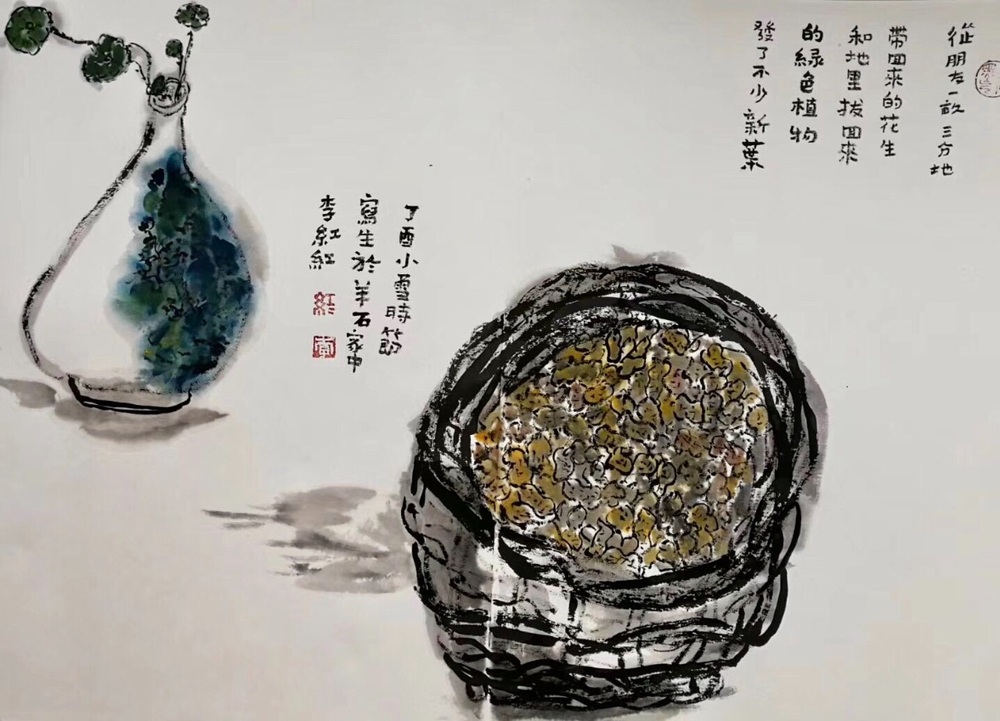 從朋友一畝三分地
帶回來的花生
和地里拔回來
的綠色植物
發了不少新葉
丁酉小雪時節
寫生於羊石家中
李紅紅
紅
李